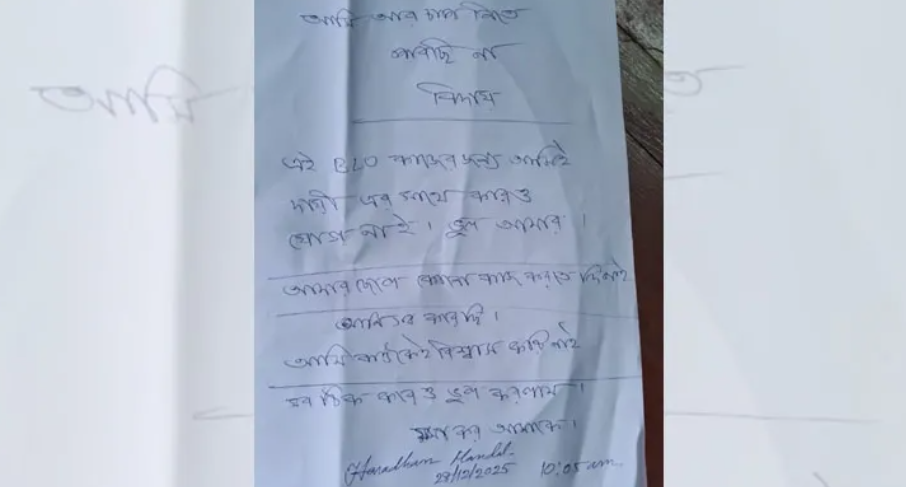 আমি আর চাপ নিতে
পারছি না
বিদায়
এই BLO কাজের জন্য আমিই
দায়ী এর সাথে কারও
যোগ নাই। ভুল আমার।
আমার ছেলে কোনো কাজ করতে দিই নাই
আমি সব করছি।
আমি কাউকেই বিশ্বাস করি নাই
সব ঠিক করেও ভুল করলাম।
ক্ষমা কর আমাকে।
Haradhan Mandal.
28/12/2025 10:05 am.